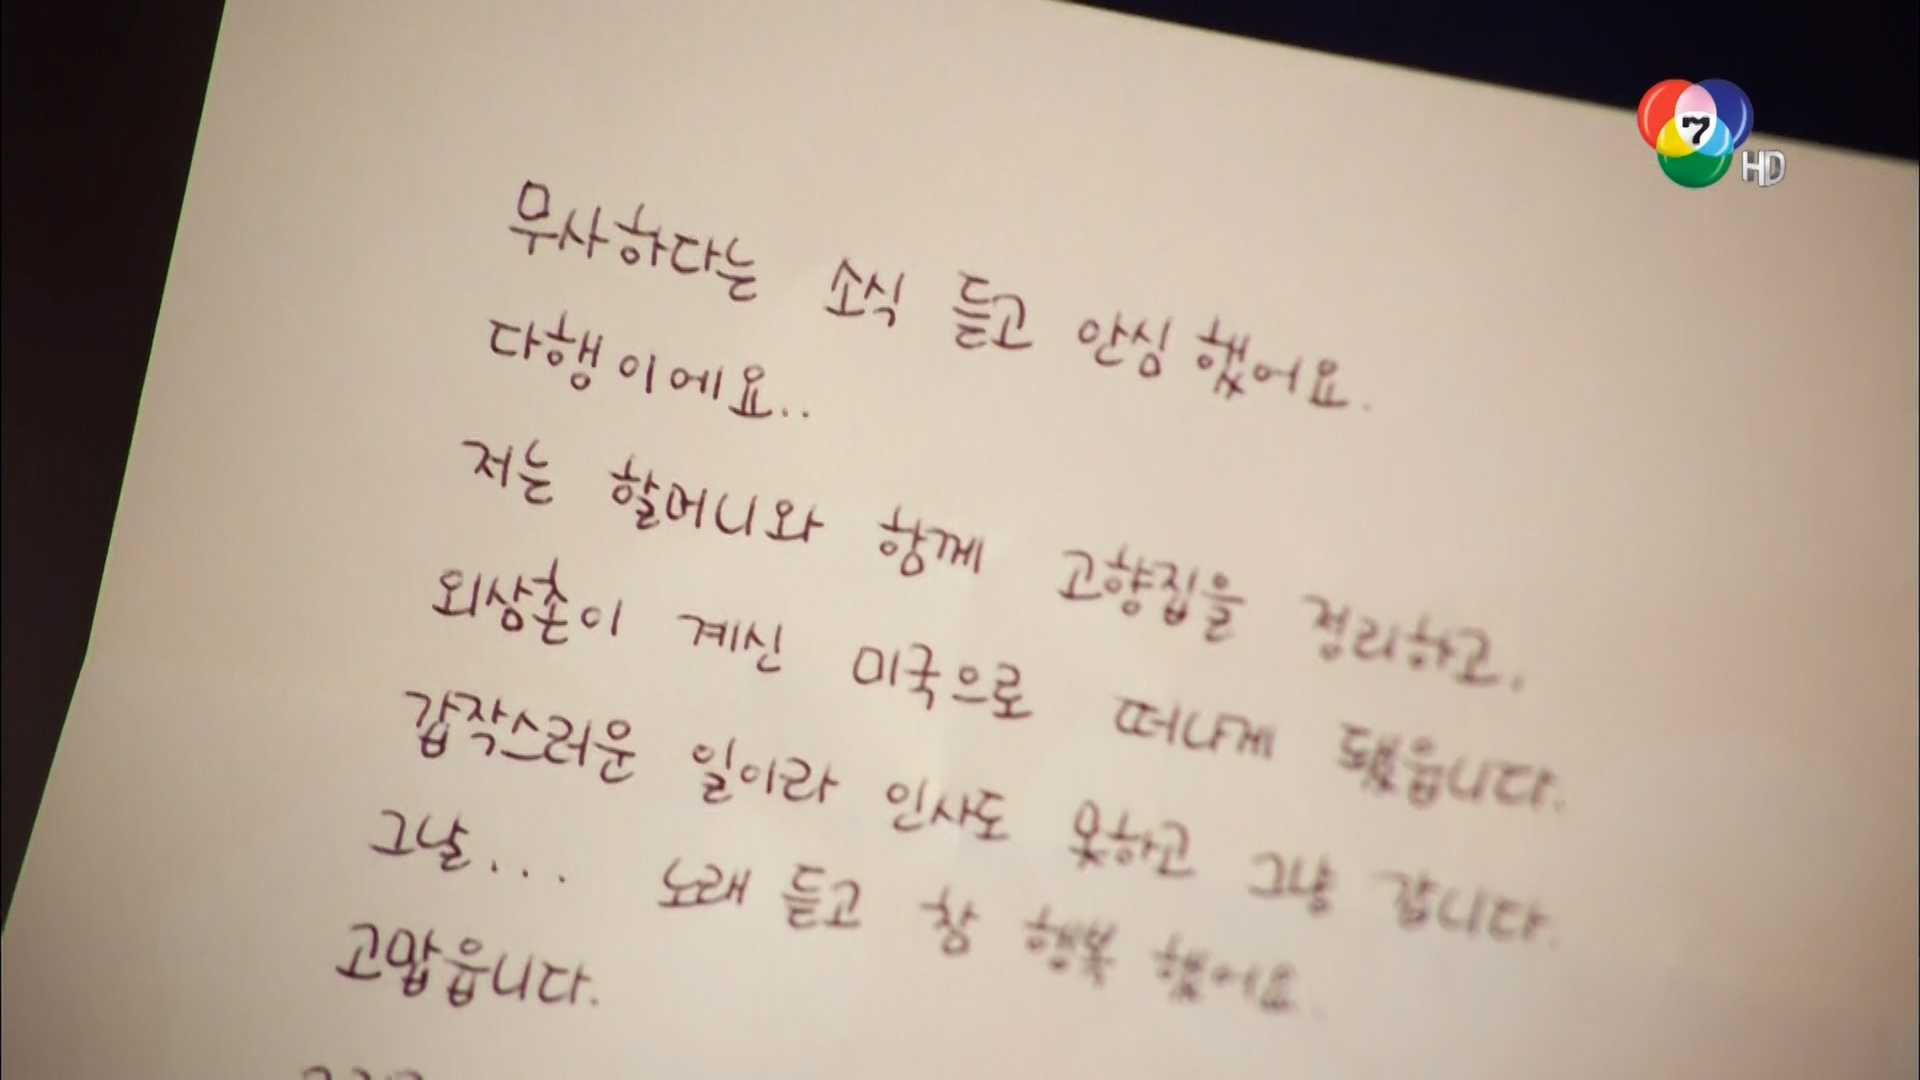 7HD
무사하다는 소식 듣고 안심했어요.
다행이에요..
저는 할머니와 함께 고향집을 정리하고,
외삼촌이 계신 미국으로 떠나게 됐읍니다.
갑작스러운 일이라 인사도 못하고 그냥 갑니다.
그날... 노래 듣고 참 행복했어요.
고맙읍니다.